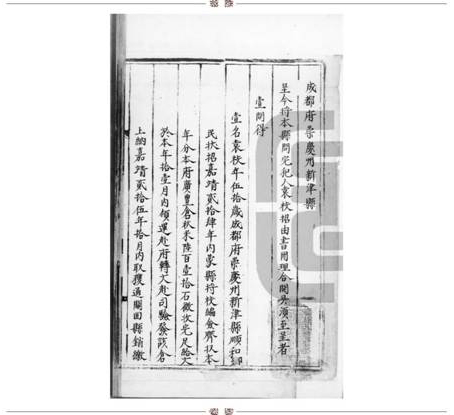 成都府崇慶州新津縣
呈今將本縣問完犯人袁秋招由書冊理合開具須至呈者
壹問得
壹名袁秋年伍拾歲成都府崇慶州新津縣順和鄉
民狀招嘉靖貳拾肆年內蒙縣將秋編僉齊狀本
年分本府廣豐倉秋米陸百壹拾石徵收完足給文
於本年拾壹月內領運赴府轉文赴司驗發該倉
上納嘉靖貳拾伍年拾月內取獲通關回縣銷繳